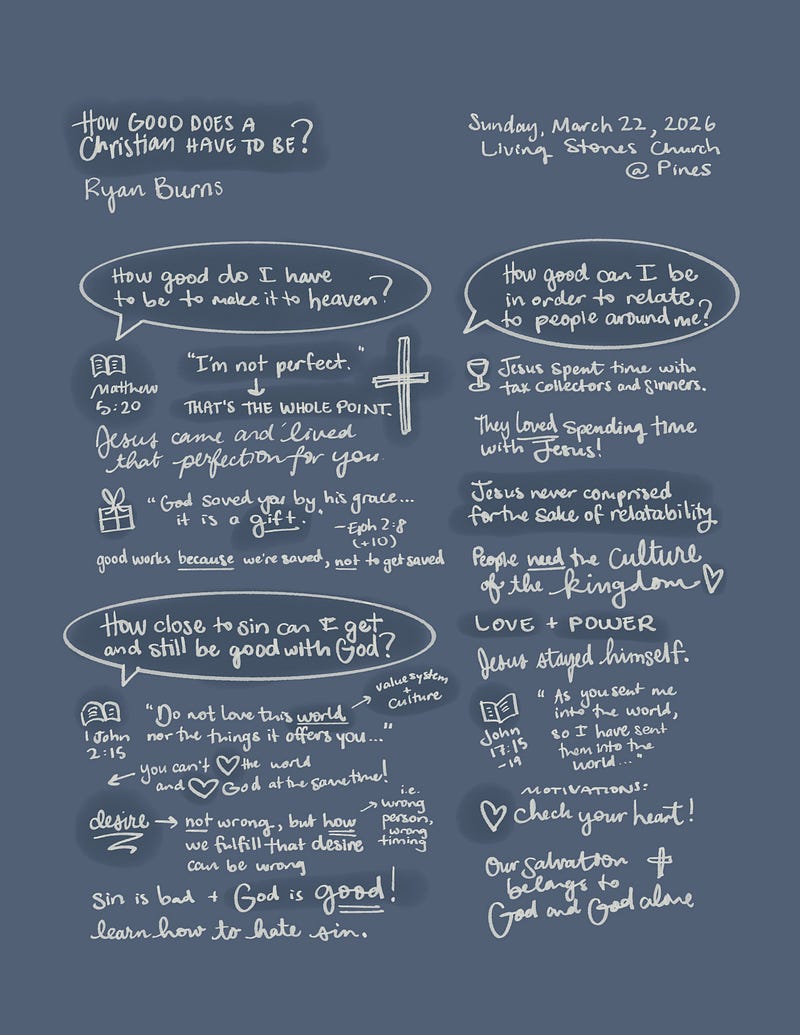 How GOOD DOES A
Christian HAVE TO BE?
Ryan Burns
Sunday, March 22, 2026
Living Stones Church
@ Pines
How good do I have
to be to make it to heaven?
Matthew
5:20
"I'm not perfect."
THAT'S THE WHOLE POINT.
Jesus came and lived
that perfection for you.
"God saved you by his grace...
it is a gift."
-Eph 2:8
(+10)
good works because we're saved, not to get saved
How close to sin can I get
and still be good with God?
value system
+
culture
1 John
2:15
"Do not love this world
nor the things it offers you..."
you can't ♡ the world
and ♡ God at the same time!
desire → not wrong, but how
we fulfill that desire
can be wrong
i.e.
wrong
person,
wrong
timing
sin is bad + God is good!
learn how to hate sin.
How good can I be
in order to relate
to people around me?
Jesus spent time with
tax collectors and sinners.
They loved spending time
with Jesus!
Jesus never comprised
for the sake of relatability.
People need the culture
of the kingdom ♡
LOVE + POWER
Jesus stayed himself.
John
17:15
-19
"As you sent me
into the world,
so I have sent
them into the
world..."
MOTIVATIONS:
♡ check your heart!
Our salvation
belongs to
God and God alone